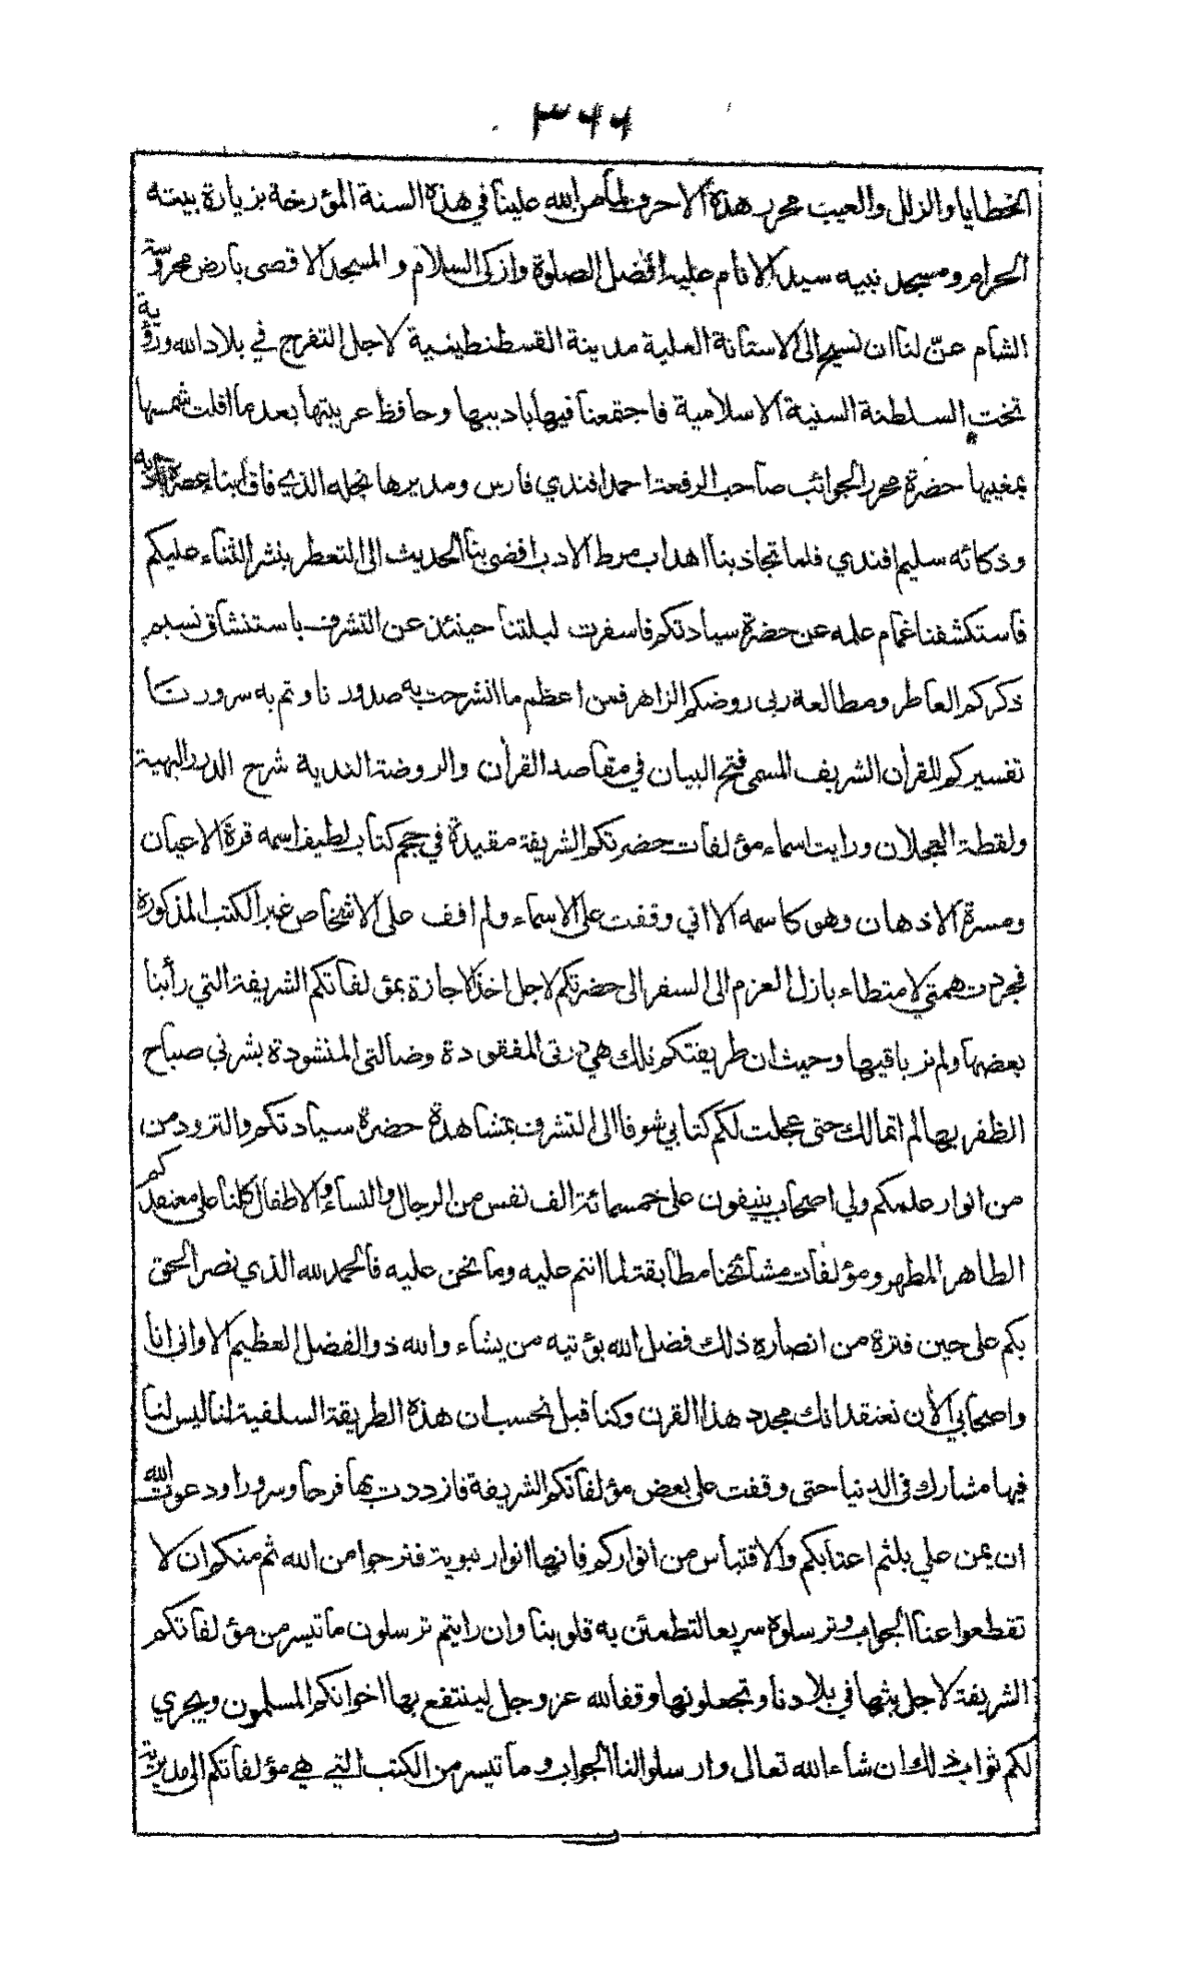 ٣٦٦
الخطايا والزلل والعيب محرر هذة الاحرف لما من الله علينا في هذه السنة المؤرخة بزيارة بيته
الحرام ومسجد نبيه سيد الانام عليه افضل الصلوة وازكى السلام و المسجد الاقصى بارض محروسة
الشام عنّ لنا ان نسيح الى الاستانة العلية مدينة القسطنطينية لاجل التفرج في بلاد الله ورؤية
تخت السلطنة السنية الاسلامية فاجتمعنا فيها باديبها وحافظ عربيتها بعد ما افلت شمسها
بمغيبها حضرة محرر الجوائب صاحب الرفعة احمد افندي فارس ومديرها نجله الذي فاق ابناء عصره
وذكائه سليم افندي فلما تجاذبنا اهداب مرط الادب افضى بنا الحديث الى التعطر بنشر الثناء عليكم
فاستكشفنا غمام علمه عن حضرة سيادتكم فاسفرت ليلتنا حينئذ عن التشرف باستنشاق نسيم
ذكركم العاطر ومطالعة ربى روضكم الزاهر فمن اعظم ما انشرحت به صدورنا وتم به سرورنا
تفسيركم للقرأن الشريف المسمى فتح البيان في مقاصد القرأن والروضة الندية شرح الدرر البهية
ولقطة العجلان ورايت اسماء مؤلفات حضرتكم الشريفة مقيدة في حجم كتاب لطيف اسمه قرة الاعيان
ومسرة الاذهان وهو كاسمه الا اني وقفت على الاسماء ولم اقف على الاشخاص غير الكتب المذكورة
فجردت همتي لامتطاء بازل العزم الى السفر الى حضرتكم لاجل اخذ الاجازة بمؤلفاتكم الشريفة التي رأينا
بعضها ولم نر باقيها وحيث ان طريقتكم تلك هي درتى المفقودة وضالتى المنشودة بشرني صباح
الظفر بها لم اتمالك حتى عجلت لكم كتابي شوقا الى التشرف بمشاهدة حضرة سيادتكم والتزود من
من انوار علمكم ولي اصحاب ينيفون على خمسمائة الف نفس من الرجال والنساء والاطفال كلنا على معتقدكم
الطاهر المطهر ومؤلفات مشائخنا مطابقة لما انتم عليه وما نحن عليه فالحمد لله الذي نصر الحق
بكم على حين فترة من انصاره ذلك فضل الله يؤتيه من يشاء والله ذو الفضل العظيم الا واني انا
واصحابي الأن نعتقد انك مجدد هذا القرن وكنا قبل نحسب ان هذه الطريقة السلفية لنا ليس لنا
فيها مشارك فى الدنيا حتى وقفت على بعض مؤلفاتكم الشريفة فازددت بها فرحا وسرورا ودعوت الله
ان يمن علي بلثم اعتابكم والاقتباس من انواركم فانها انوار نبوية فنرجوا من الله ثم منكم ان لا
تقطعوا عنا الجواب وترسلوه سريعا لتطمئن به قلوبنا وان رايتم ترسلون ما تيسر من مؤلفاتكم
الشريفة لاجل بثها في بلادنا وتجعلونها وقفا لله عز وجل لينتفع بها اخوانكم المسلمون ويجري
لكم ثواب ذلك ان شاء الله تعالى وارسلوا لنا الجواب وما تيسر من الكتب التي هي مؤلفاتكم الى مديرية